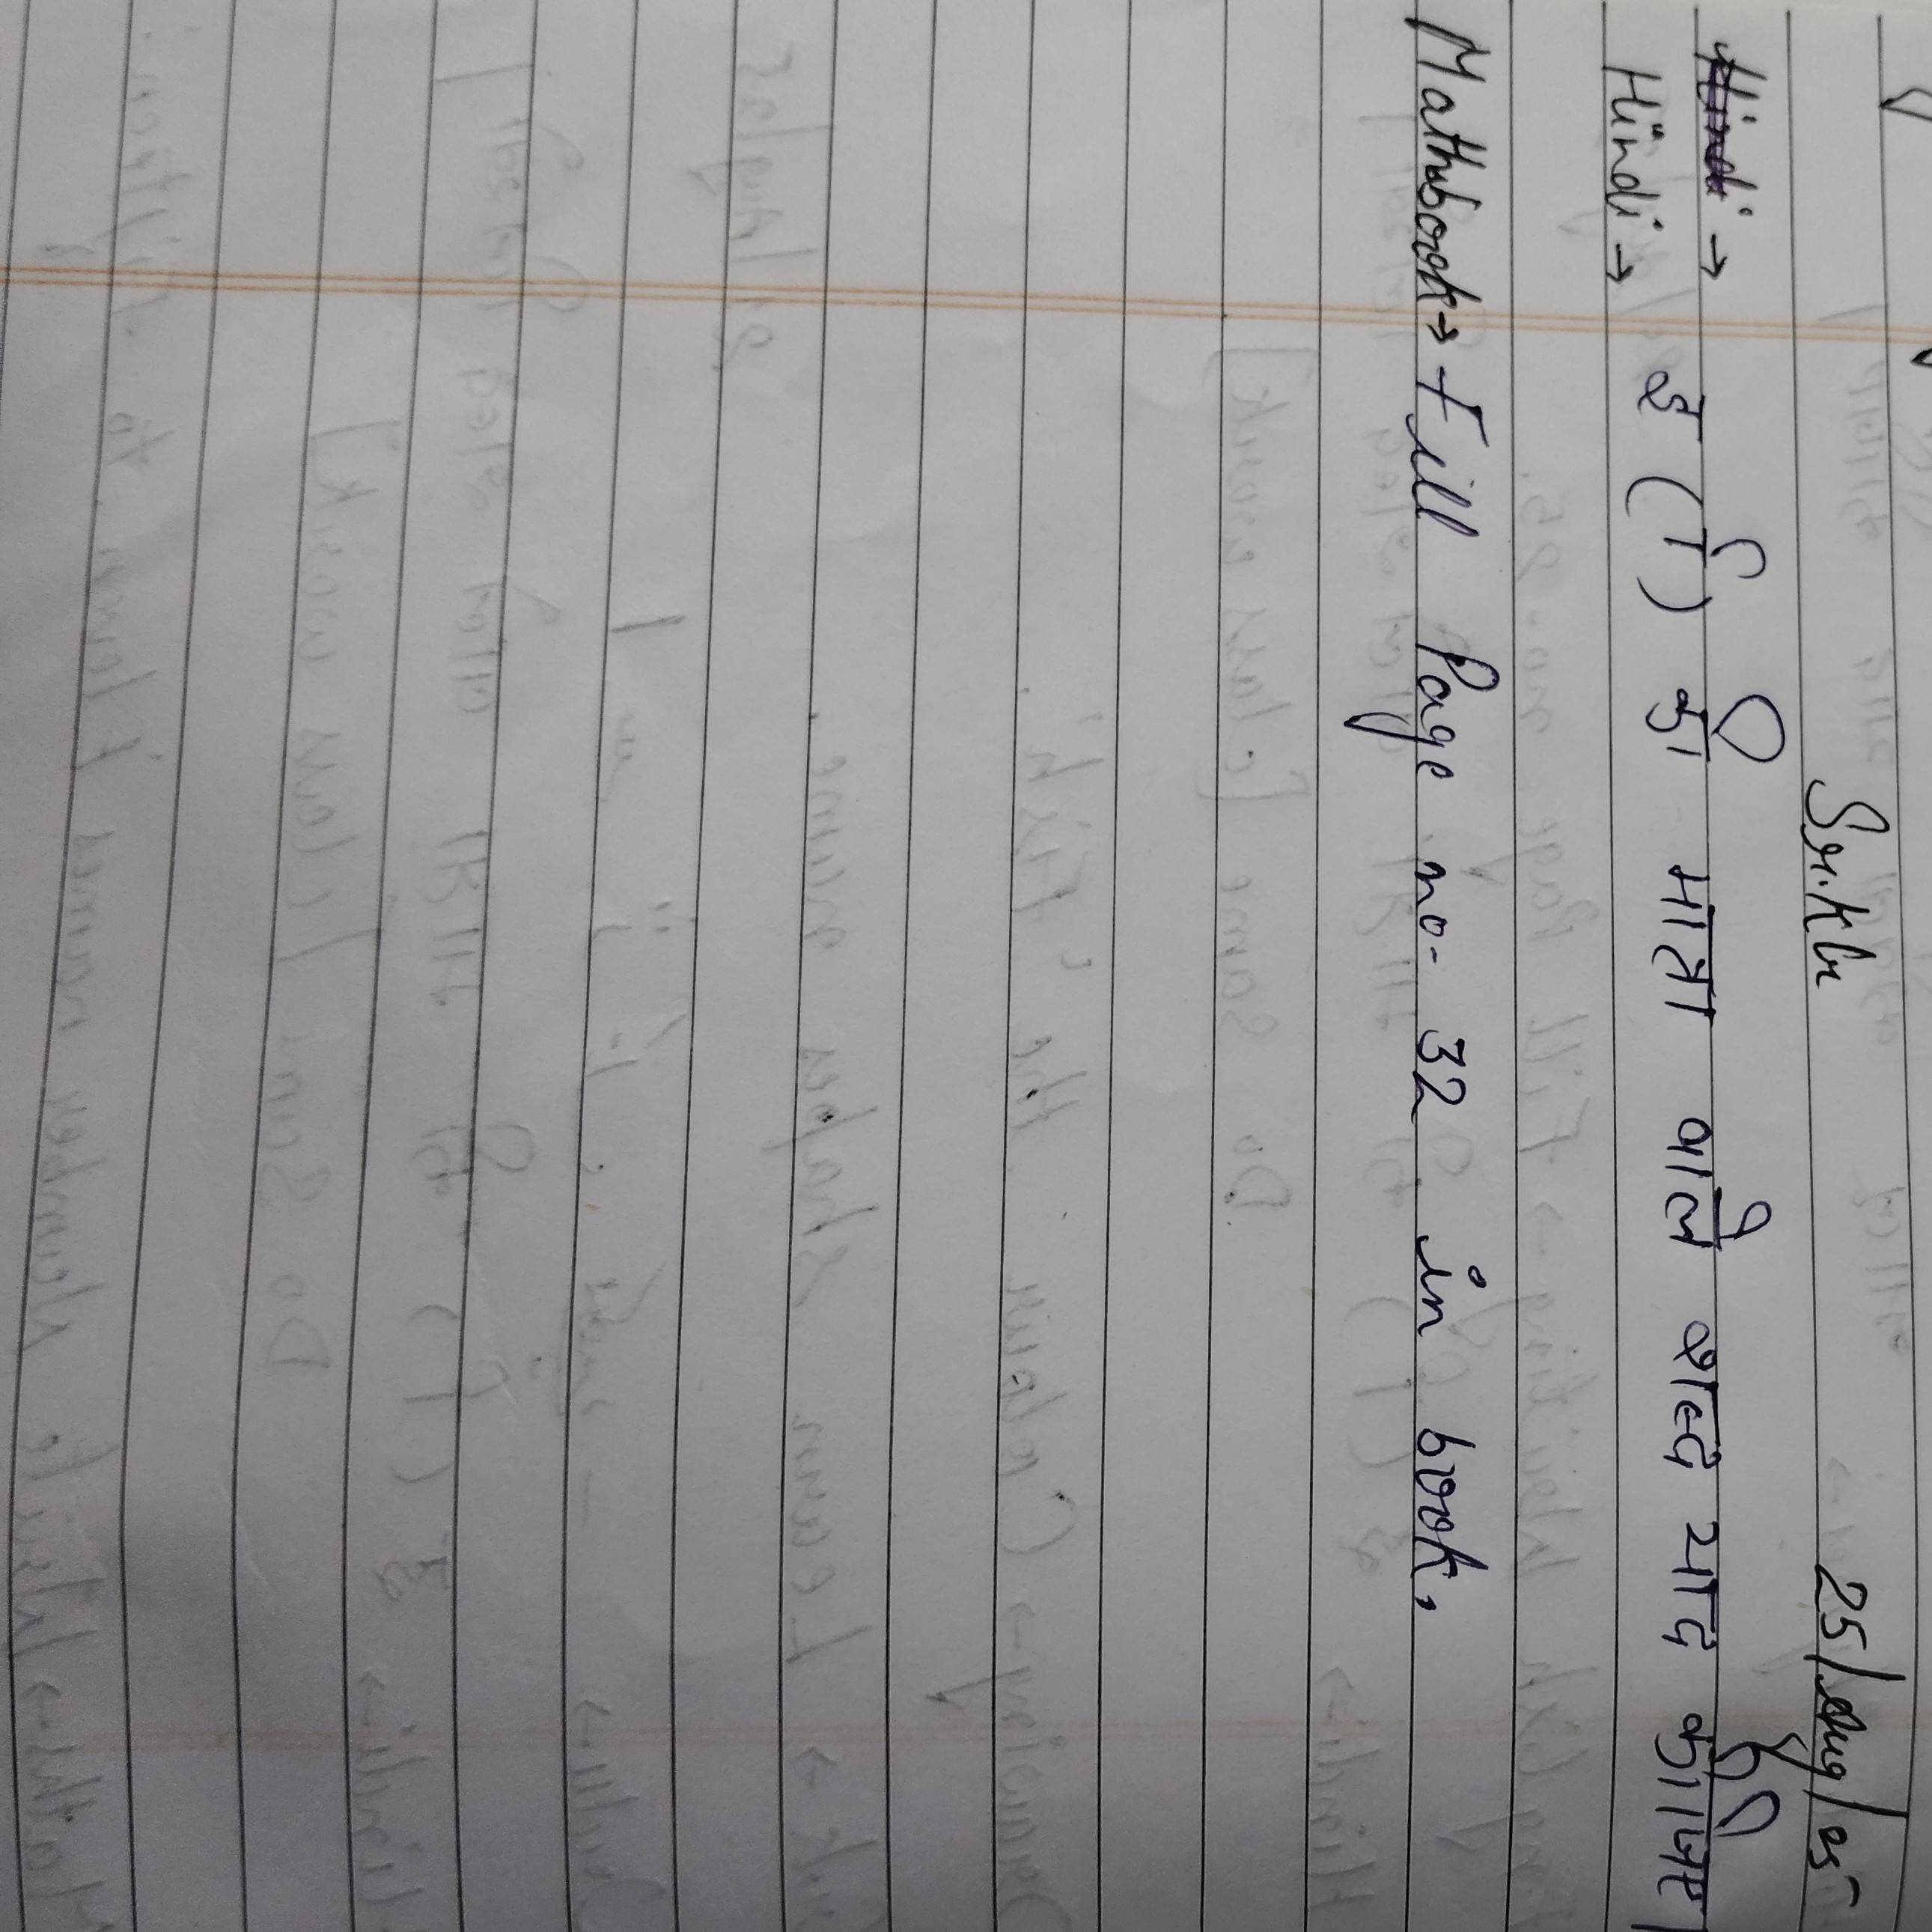 Srikh 25/Aug/25
Hindi →
Hindi → इ (ि) की मात्रा वाले शब्द याद कीजिए।
Mathsbook → Fill Page no- 32 in book.